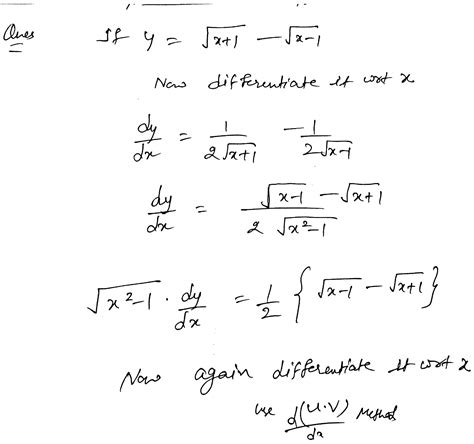 Ques If y = √x+1 - √x-1
Now differentiate it wrt x
dy/dx = 1/2√x+1 - 1/2√x-1
dy/dx = √x-1 - √x+1 / 2 √x²-1
√x²-1 . dy/dx = 1/2 { √x-1 - √x+1 }
Now again differentiate it wrt x
use d(u.v)/dx Method